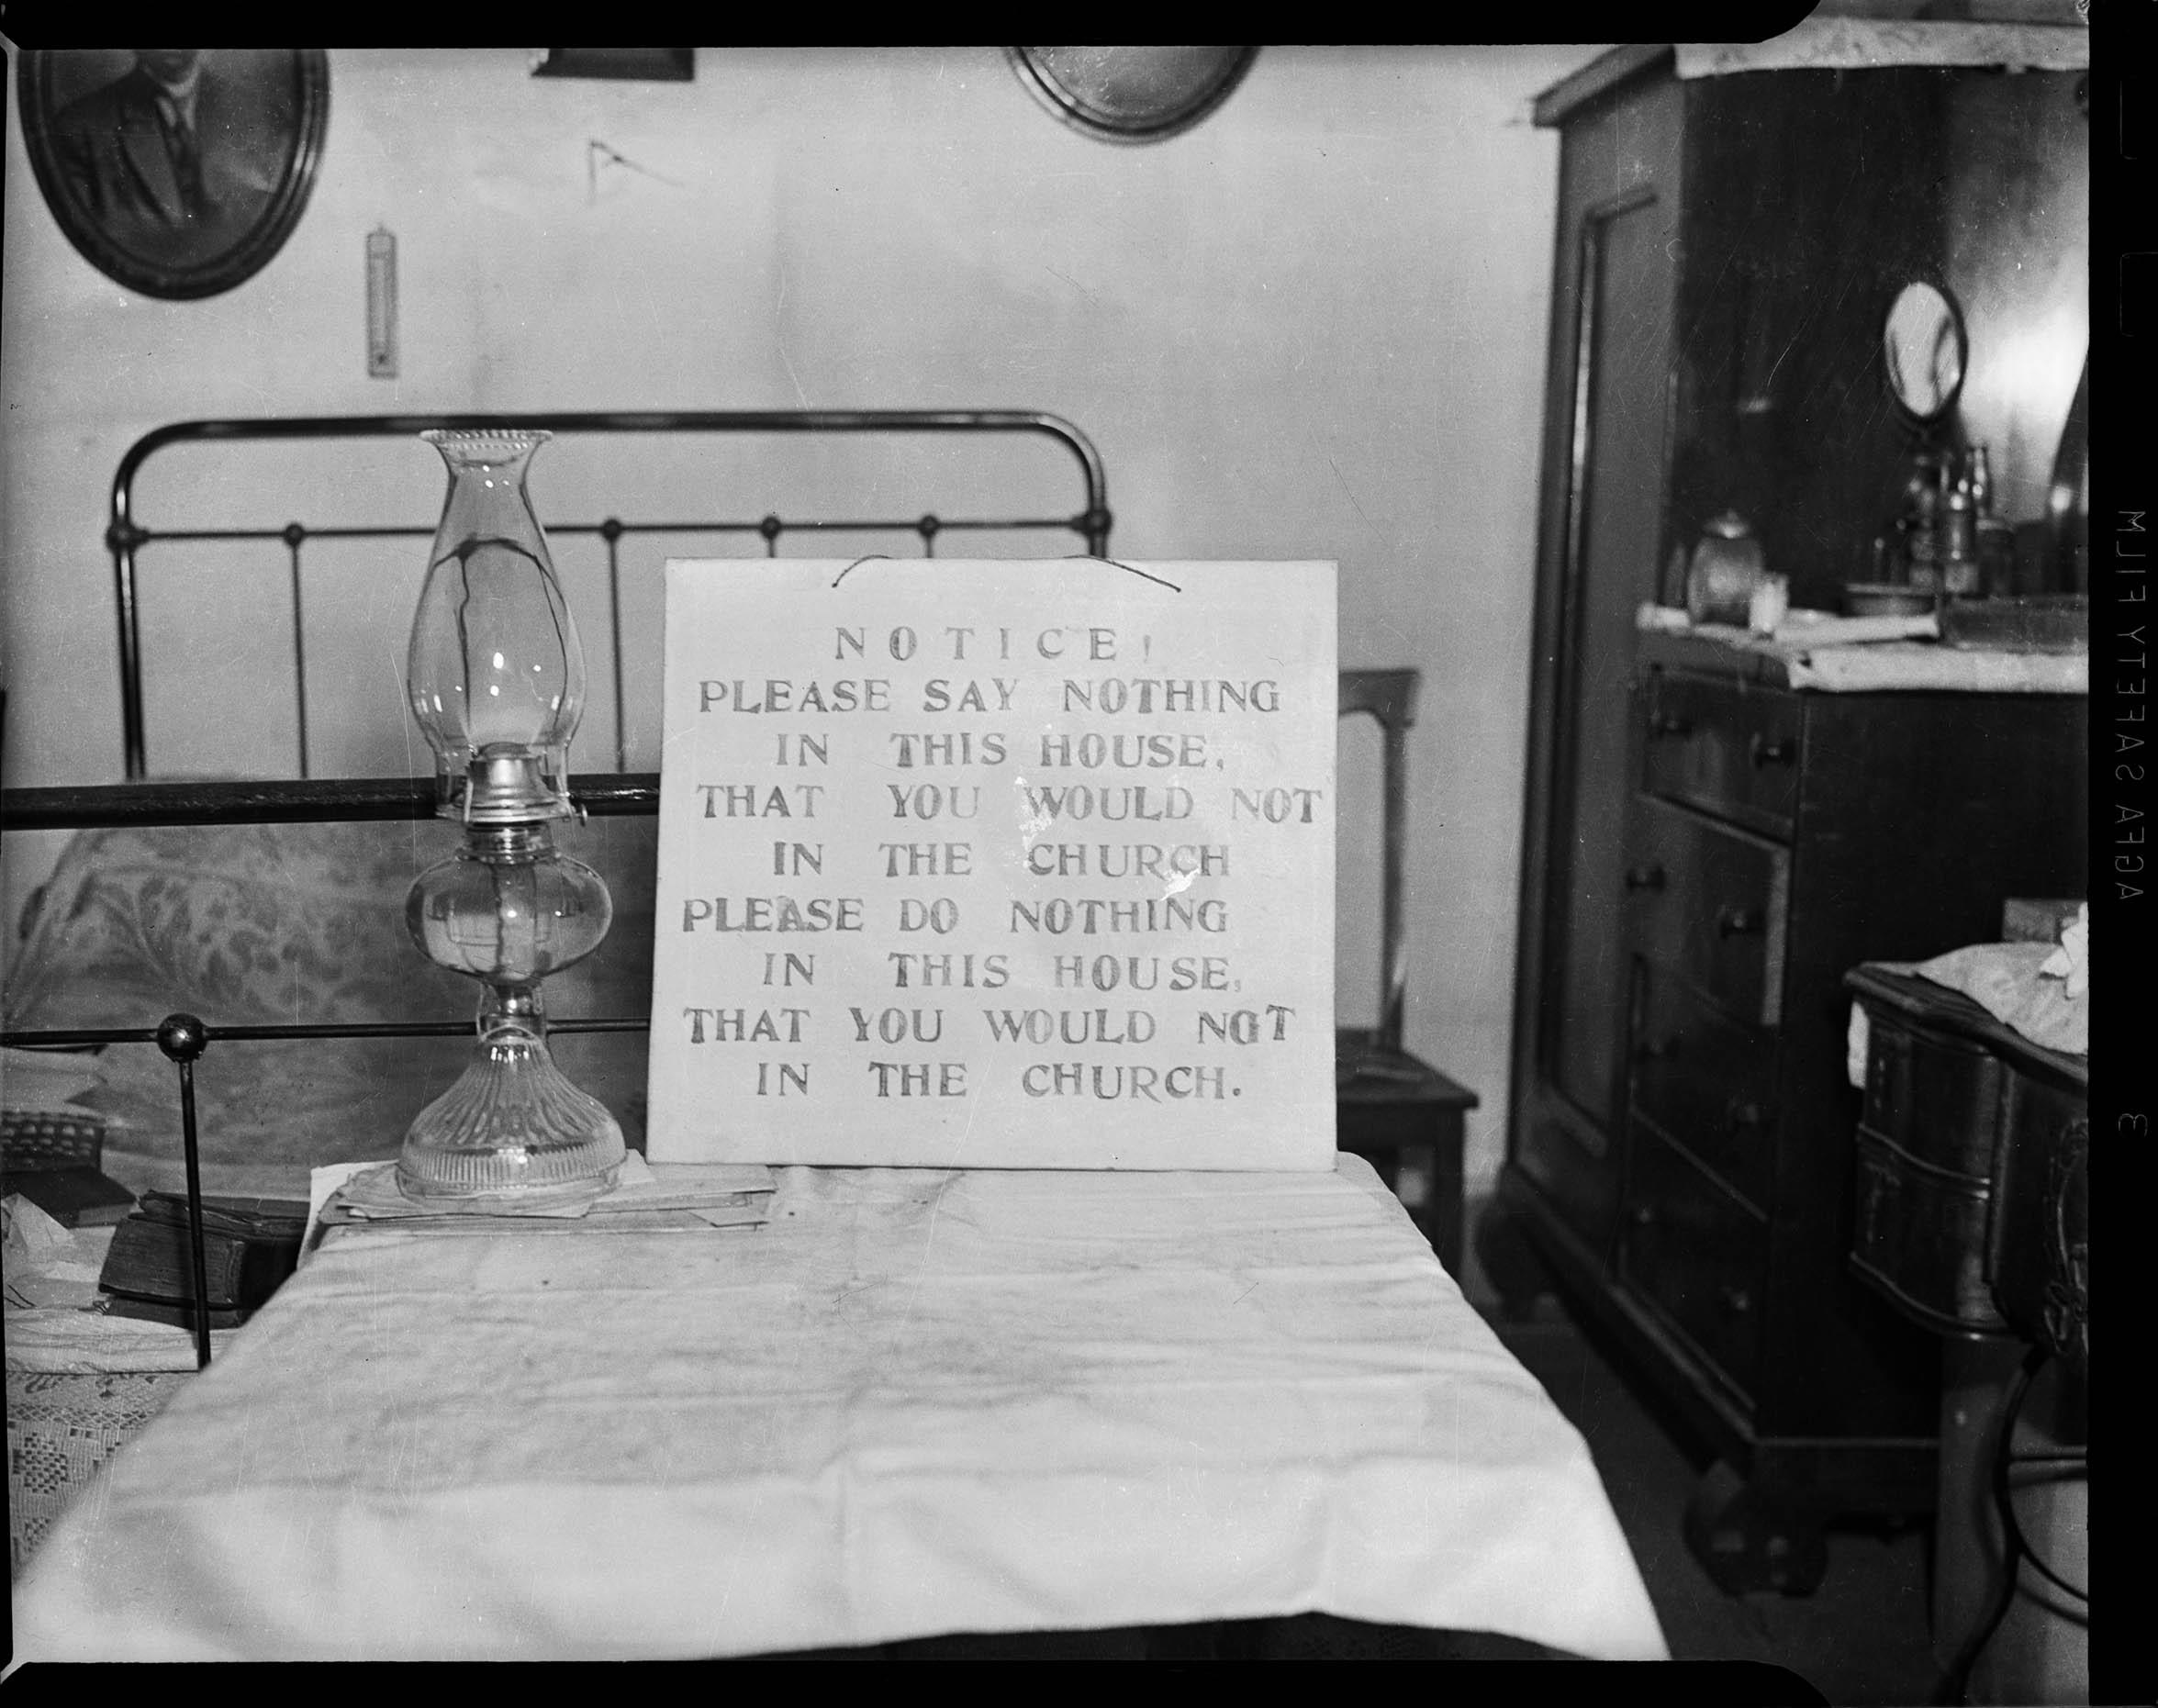 NOTICE!
PLEASE SAY NOTHING
IN THIS HOUSE,
THAT YOU WOULD NOT
IN THE CHURCH
PLEASE DO NOTHING
IN THIS HOUSE,
THAT YOU WOULD NOT
IN THE CHURCH.
AGFA SAFETY FILM
3